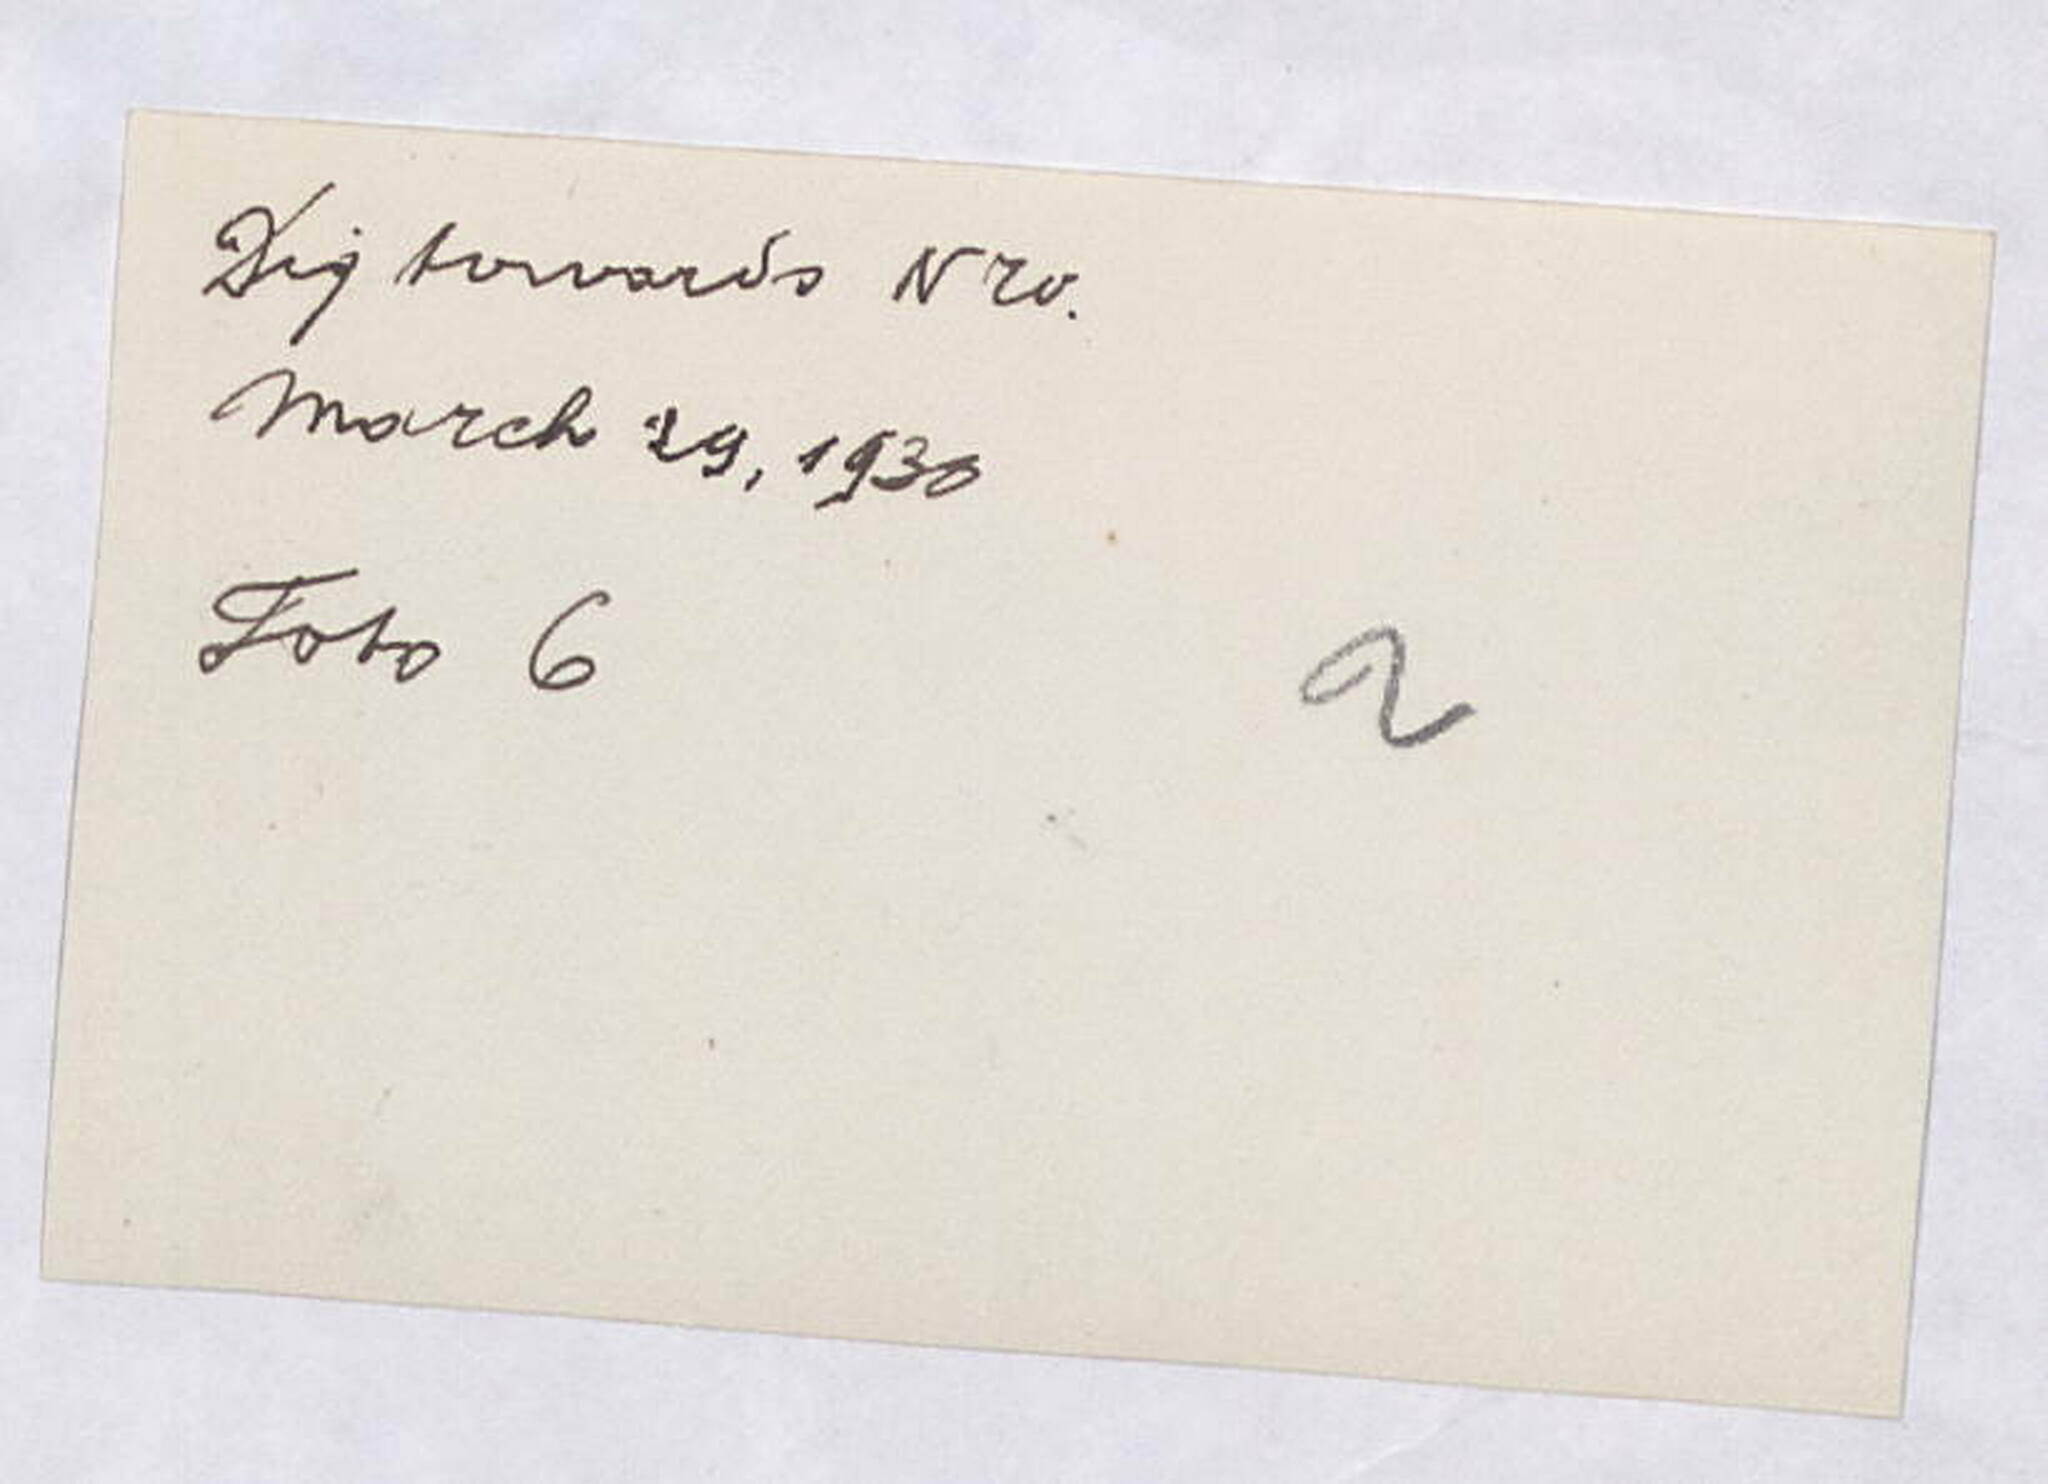 Dig towards NW.
March 29, 1930
Foto 6